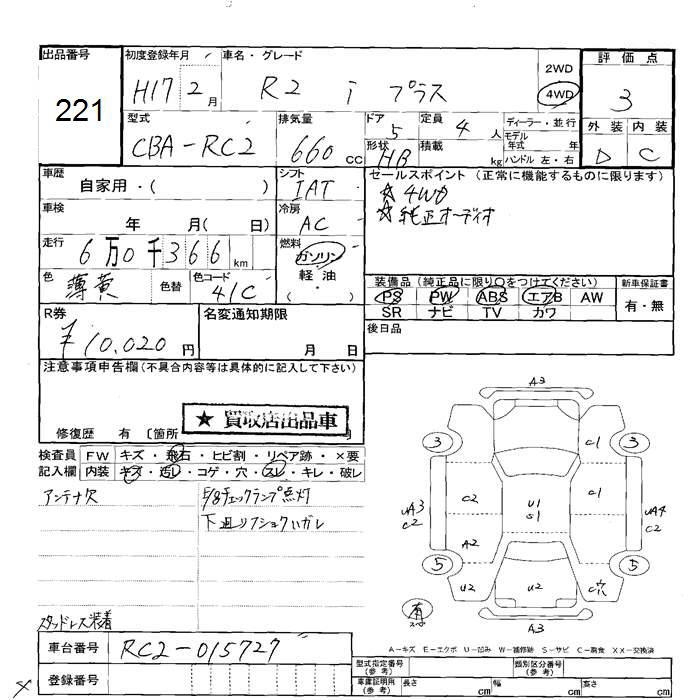 出品番号 初度登録年月 車名・グレード 評価点
221
H17 2月 R2 i プラス 2WD 4WD 3
型式 排気量 ドア 定員 ディーラー・並行 外装 内装
CBA-RC2 660CC 5 4人 モデル年式 年 D C
形状 HB 積載 kg ハンドル 左・右
車歴 シフト セールスポイント (正常に機能するものに限ります)
自家用・( ) IAT ☆4WD
車検 冷房 ☆純正オーディオ
年 月( 日) AC
走行 燃料
6万0千366km ガソリン
軽油
・( )
色 色替 色コード
薄黄 41C
装備品 (純正品に限り○をつけてください) 新車保証書
PS PW ABS エアB AW 有・無
SR ナビ TV カワ
R券 名変通知期限 後日品
¥10,020円 月 日
注意事項申告欄(不具合内容等は具体的に記入して下さい)
★ 買取店出品車
修復歴 有 〔箇所 〕
検査員 FW キズ・飛石・ヒビ割・リペア跡・×要
記入欄 内装 キズ・汚レ・コゲ・穴・スレ・キレ・破レ
アンテナ欠 E/gチェックランプ点灯
下廻リ
スタッドレス装着
車台番号 RC2-015727
登録番号
A3
3 C1 3
C2 U1 S1 C1
UA3 C2 UA4 C2
A2
5 5
U2 U2 C穴
有 スペ
A3
A-キズ E-エクボ U-凹み W-補修跡 S-サビ C-腐食 XX-交換済
型式指定番号(参考) 類別区分番号(参考)
車庫証明用(参考) 長さ cm 幅 cm 高さ cm